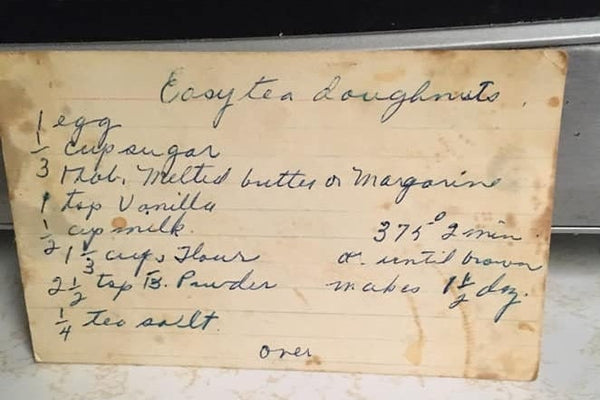 Easy tea doughnuts
1 egg
1/3 cup sugar
1 Tab. Melted butter or Margarine
1 tsp Vanilla
1/2 cup milk.
1 1/3 cups Flour
2 1/2 tsp B. Powder
1/4 tea salt
375° 2 min
or until brown
makes 1 1/2 doz.
over